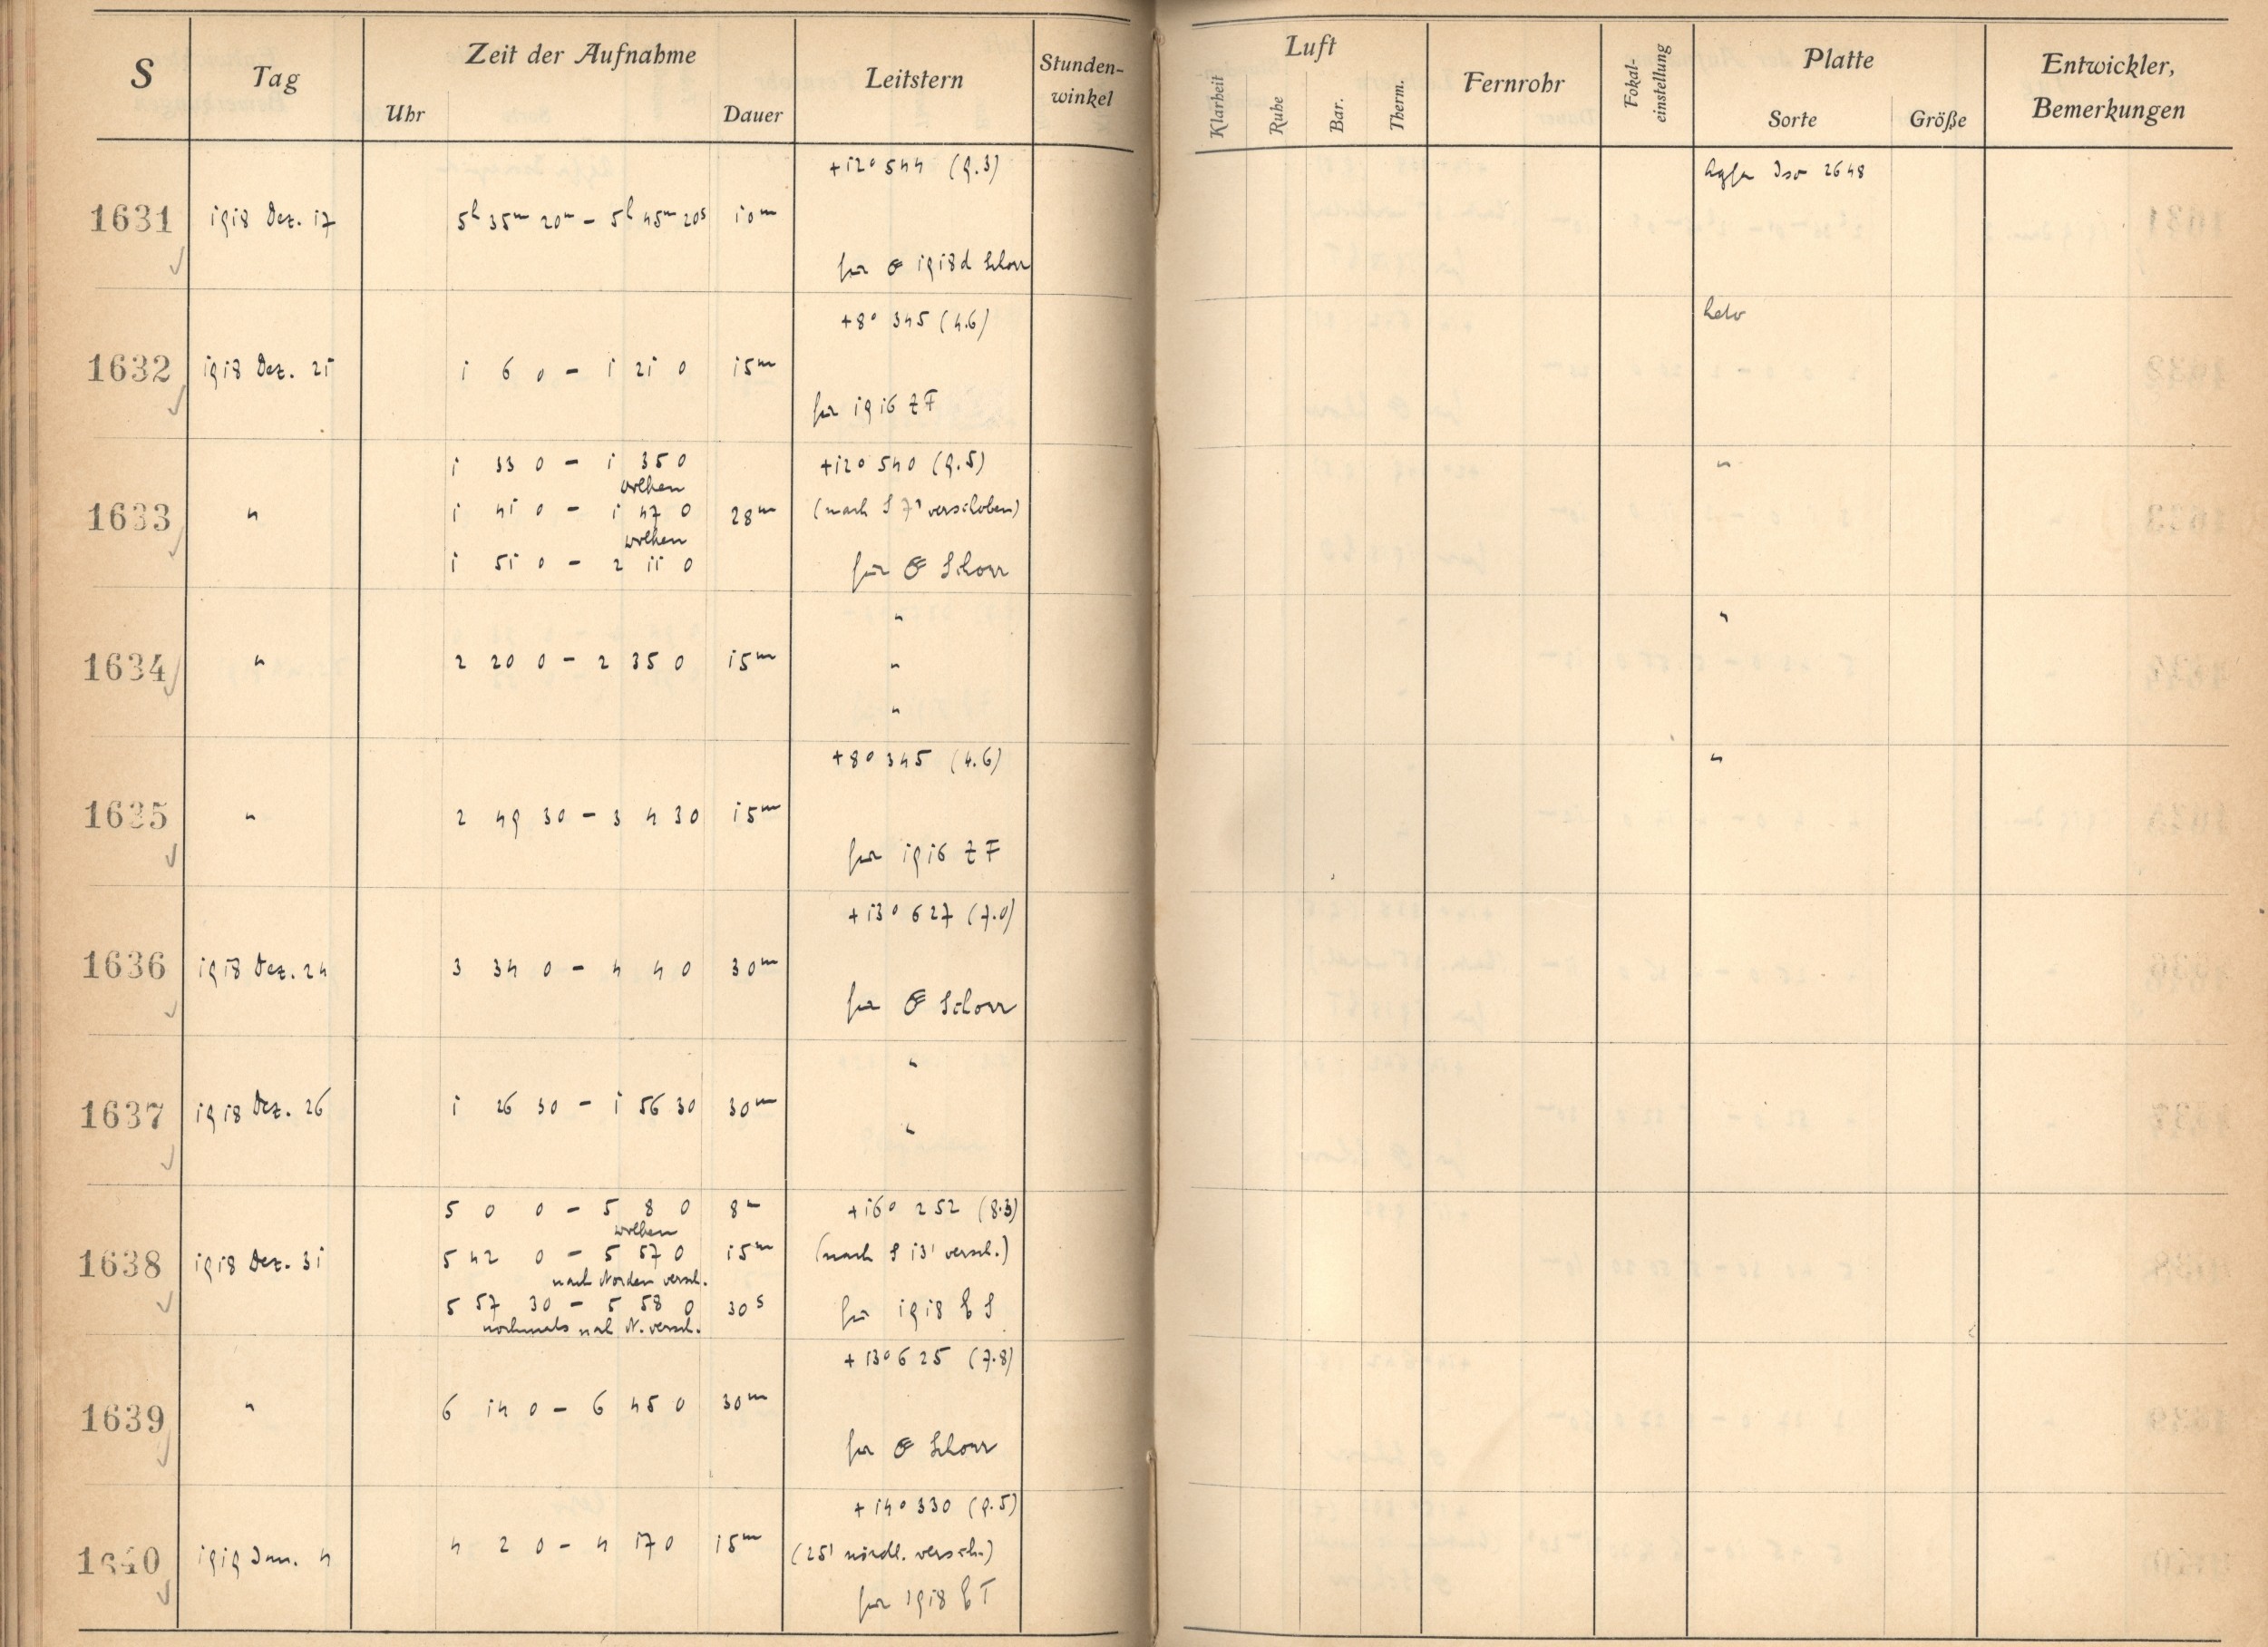 S Tag Zeit der Aufnahme Leitstern Stunden-winkel Luft Fernrohr Fokal-einstellung Platte Entwickler, Bemerkungen
Uhr Dauer Klarheit Ruhe Bar. Therm. Sorte Größe
+12° 544 (9.3) Agfa Iso 2648
1631 1918 Dez. 17 5h 35m 20m – 5h 45m 20s 10m
für ☄ 1918d Schorr
+8° 345 (4.6)
1632 1918 Dez. 21 1 6 0 – 1 21 0 15m
für 1916 ZF
1 33 0 – 1 35 0 +12° 540 (9.5) "
Wolken
1633 " 1 41 0 – 1 47 0 28m (nach S 7' verschoben)
Wolken
1 51 0 – 2 11 0 für ☄ Schorr
" "
1634 " 2 20 0 – 2 35 0 15m "
"
+8° 345 (4.6) "
1635 " 2 49 30 – 3 4 30 15m
für 1916 ZF
+13° 627 (7.0)
1636 1918 Dez. 24 3 34 0 – 4 4 0 30m
für ☄ Schorr
"
1637 1918 Dez. 26 1 26 30 – 1 56 30 30m
"
5 0 0 – 5 8 0 8m +16° 252 (8.3)
Wolken
1638 1918 Dez. 31 5 42 0 – 5 57 0 15m (nach S 13' versch.)
nach Norden versch.
5 57 30 – 5 58 0 30s für 1918 E S
nochmals nach N. versch.
+13° 625 (7.8)
1639 " 6 14 0 – 6 45 0 30m
für ☄ Schorr
+14° 330 (9.5)
1640 1919 Jan. 4 4 2 0 – 4 17 0 15m (25' nördl. versch.)
für 1918 E T